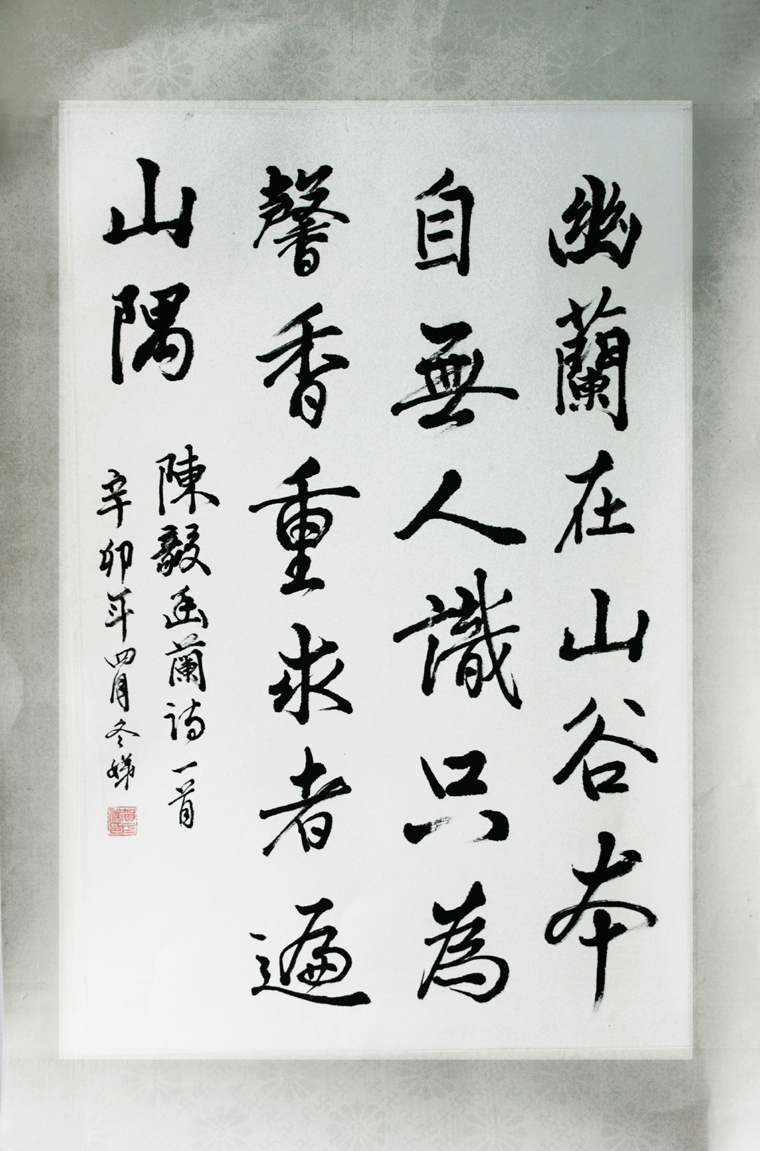 幽蘭在山谷本
自無人識只為
馨香重求者遍
山隅
陳毅幽蘭詩一首
辛卯年四月冬娣